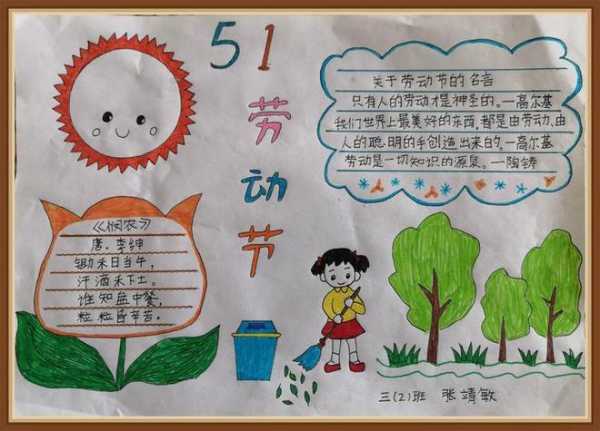 51
劳动节
关于劳动节的名言
只有人的劳动才是神圣的。—高尔基
我们世界上最美好的东西,都是由劳动、由
人的聪明的手创造出来的。—高尔基
劳动是一切知识的源泉。—陶铸
《悯农》
唐。李绅
锄禾日当午,
汗滴禾下土。
谁知盘中餐,
粒粒皆辛苦。
三(2)班 张靖敏